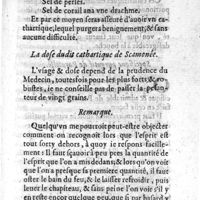 Sel de perles.
Sel de corail ana vne drachme.
Et par ce moyen serez asseuré d'auoir vn ca-
thartique, lequel purgera benignement, & sans
aucune difficulté.
La dose dudit cathartique de Scamonée.
L'vsage & dose depend de la prudence du
Medecin, toutefois pour les plus forts & ro-
bustes, ie ne conseille pas de passer la pesan-
teur de vingt grains.
Remarque.
Quelqu'vn me pourroit peut-estre objecter
comment on recognoit lors que l'esprit est
tout forty dehors, à quoy ie responds facille-
ment: Il faut sçauoir à peu prés la quantité de
l'esprit que l'on a mis dedans; & lors qu'on voit
que l'on a presque sa premiere quantité, il faut
oster le bain du feu, & le laisser refroidir, puis
leuer le chapiteau, & sans peine l'on voit s'il y
en reste encor quelque peu, que